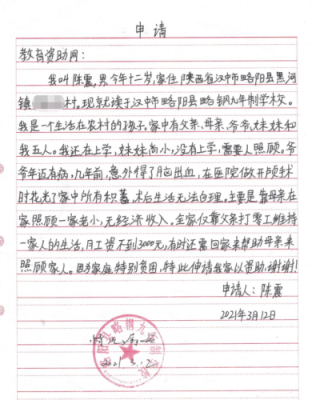 申请
教育资助网：
我叫陈震，男今年十二岁，家住陕西省汉中市略阳县黑河
镇村，现就读于汉中市略阳县略钢九年制学校。
我是一个生活在农村的孩子，家中有父亲、母亲、爷爷、妹妹和
我五人。我还在上学，妹妹尚小，没有上学，需要人照顾，爷
爷年迈有病，九年前，意外得了脑出血，在医院做开颅术
时花光了家中所有积蓄，术后生活无法自理，主要是靠母亲在
家照顾一家老小，无经济收入。全家仅靠父亲打零工维持
一家人的生活，月工资不到3000元，有时还需回家来帮助母亲来
照顾家人。因家庭特别贫困，特此申请我家以资助。谢谢！
申请人：陈震
2021年3月12日
情况属实
略阳县略钢九年制学校
2021.3.